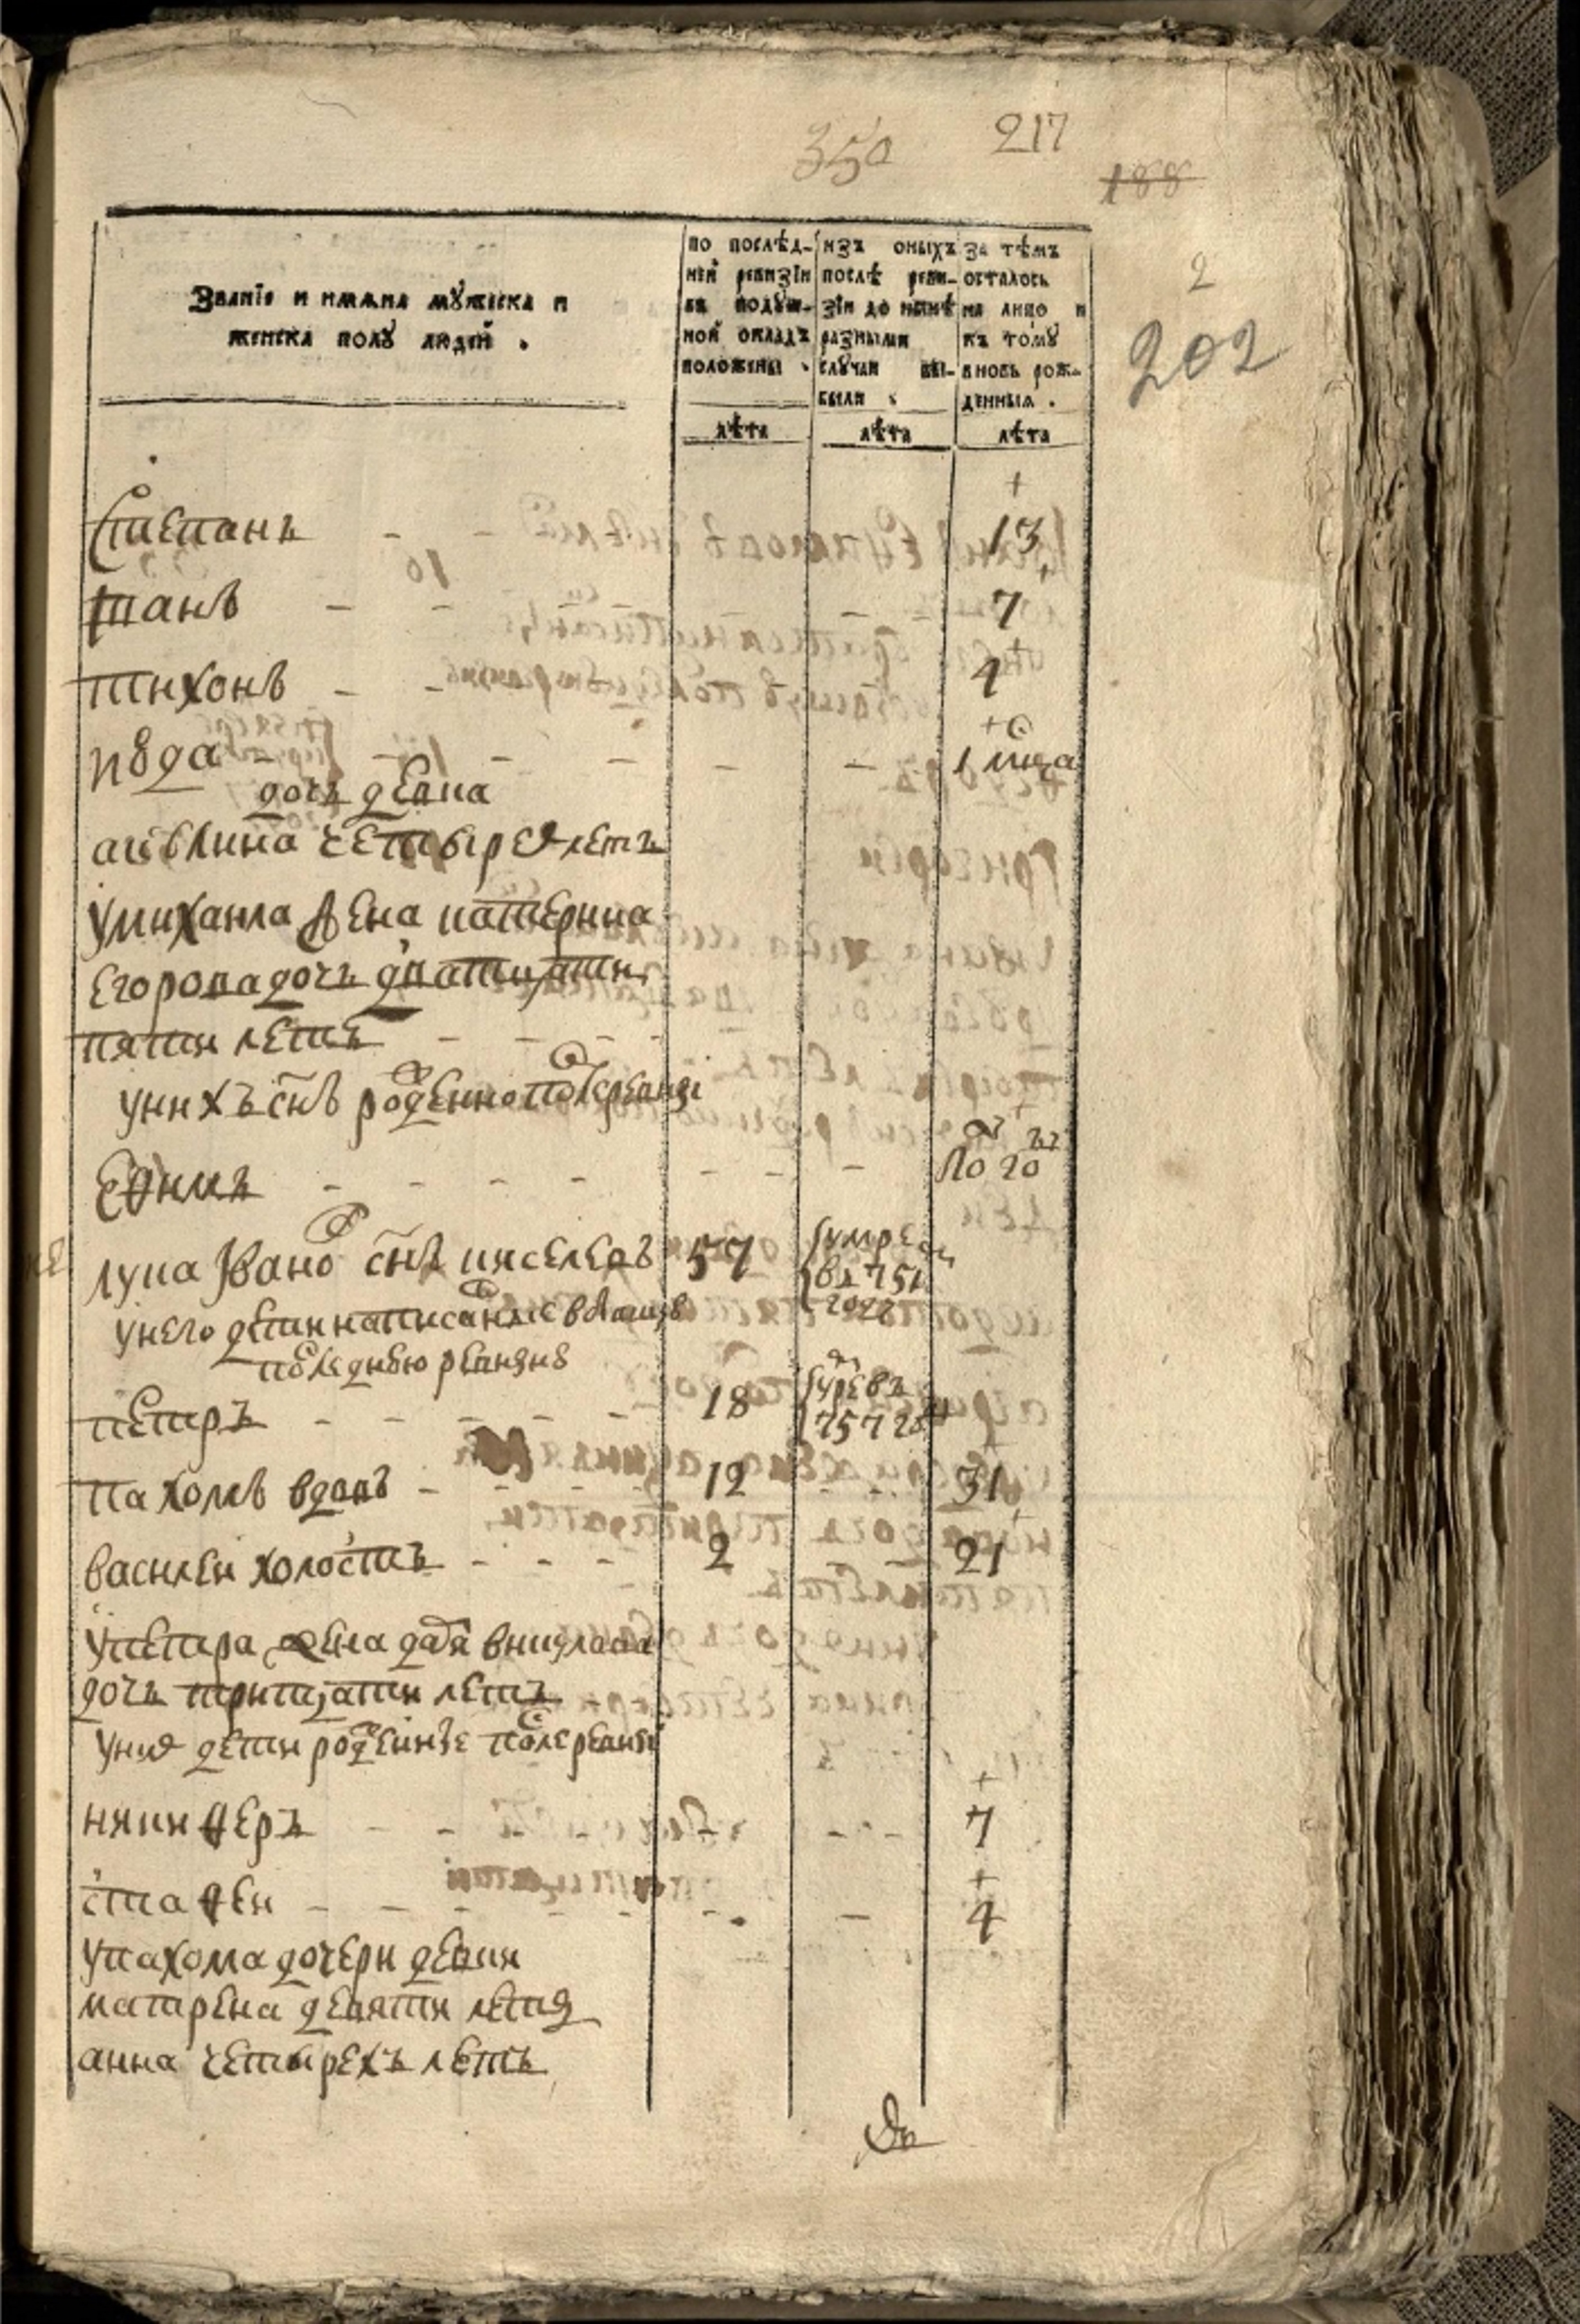 350 217
188
2
202
Званїе и имяна мꙋжеска и
женска полꙋ людей .
по послѣд-
ней ревизїи
въ подꙋш-
ной окладъ
положены .
изъ оныхъ
послѣ реви-
зїи до нынѣ
разными
слꙋчаи вы-
были .
За тѣмъ
осталось
на лицо и
къ томꙋ
вновь рож-
денныя .
лѣта лѣта лѣта
Степанъ - - 13
Иванъ - - 7
тихонъ - - 4
дочь девка
четырех летъ
умихаила жена катерина
егорова дочь дватцати
пяти летъ - - -
унихъ сн҃ъ рожденной после ревизи
Ефимъ - - - - - - - полгод
лука Иванов сн҃ъ киселевъ 57 умре
въ 751
году
унего дети написанные в бывшую
последнюю ревизию
петръ - - - - - 18
757 году
пахомъ вдовъ - - - - 12 31
василеи холостъ - - - 2 21
упетра жена авдотя
дочь тритцати летъ
уних дети рожденные после ревизи
никиферъ - - - - - 7
стафеи - - - - - - - 4
упахома дочери девки
матрена девяти летъ
анна четырехъ летъ